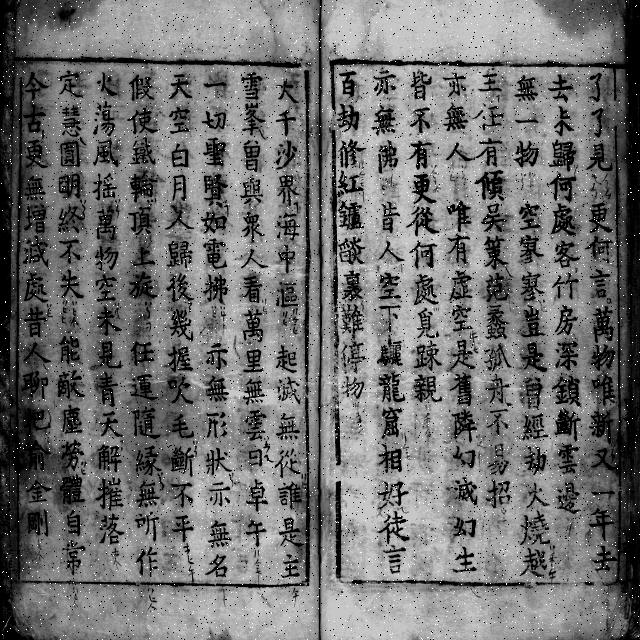 了了見更何言萬物唯新又一年士
去未歸何處客竹房深鎖斷雲邊
無一物空寥寥豈是曾經劫火燒越
王任有傾吳策范蠡孤舟不易招
亦無人唯有虛空是舊隣幻滅幻生
皆不有更從何處覓疎親
亦無佛昔人空下驪龍窟相好徒言
百劫修紅爐燄裏難停物
大千沙界海中漚起滅無從誰是主
雪峯曽與衆人看萬里無雲日卓午
一切聖賢如電拂亦無形狀亦無名
天空白月又歸後幾握吹毛斷不平
假使鐵輪頂上旋任運隨緣無所作
火蕩風搖萬物空未見青天解摧落
定慧圓明終不失能酬塵劫體自常
今古更無增減處昔人聊把喻金剛